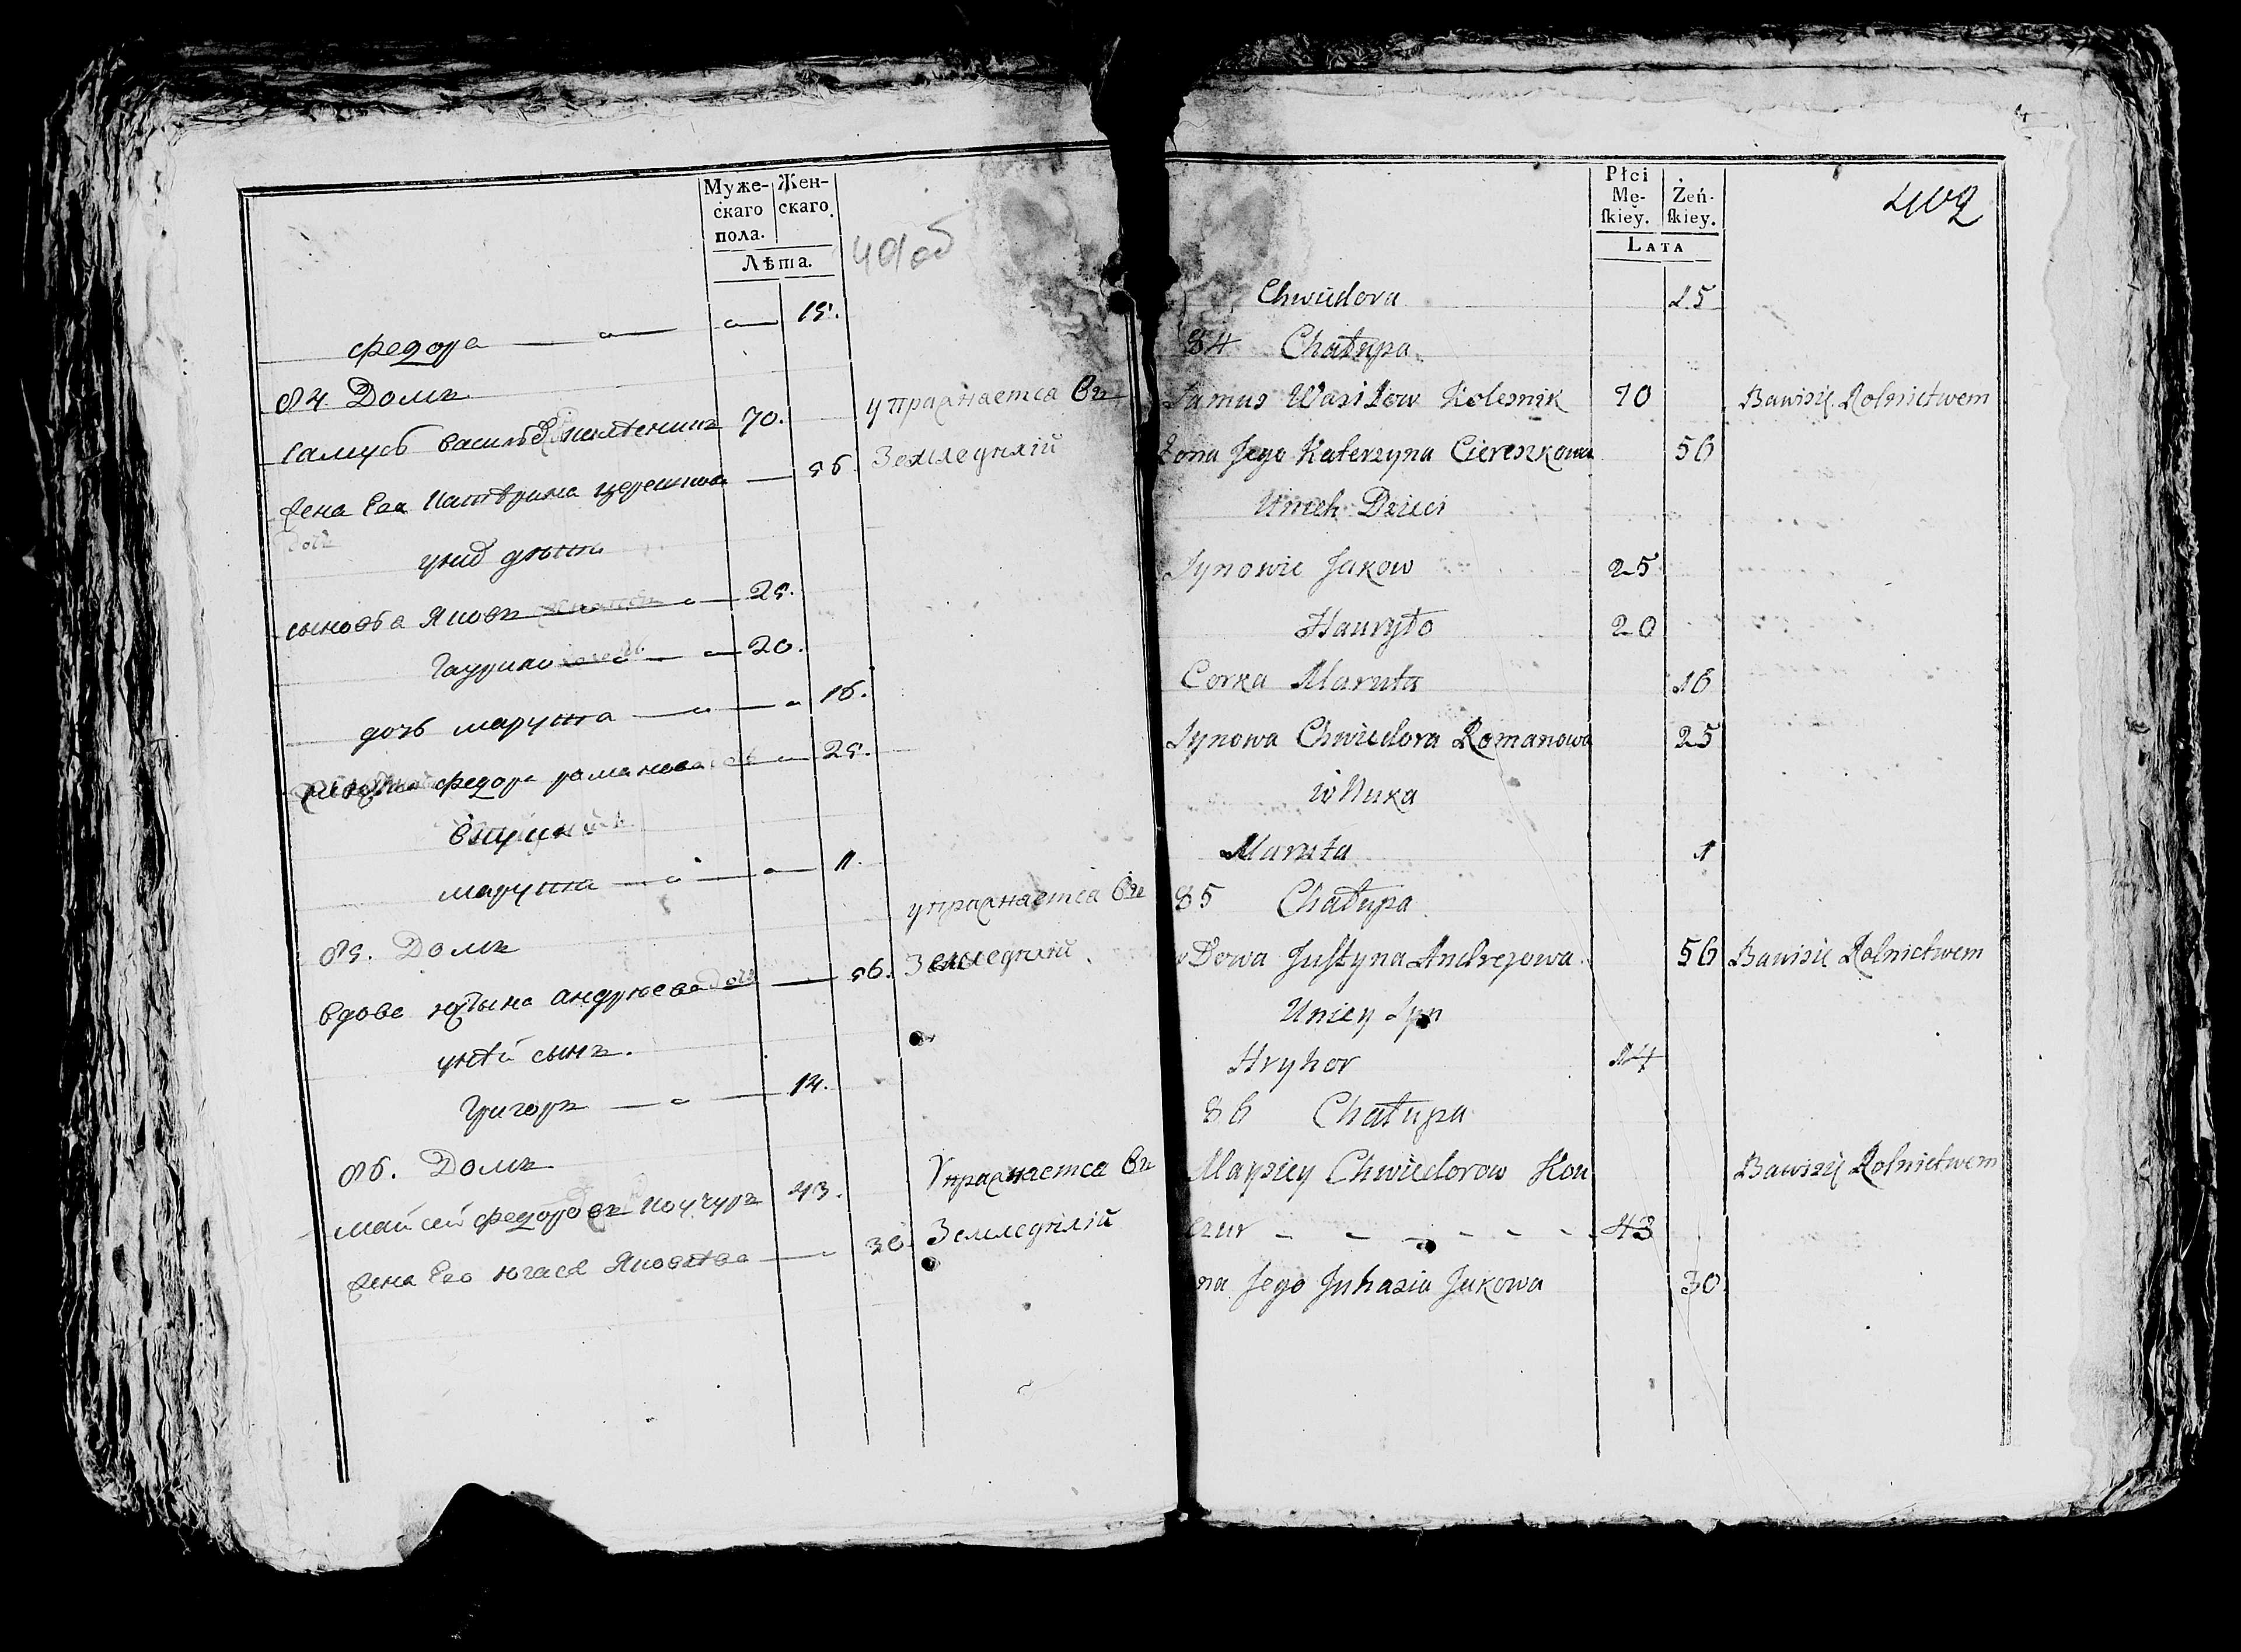 Муже-
скаго
пола.
Жен-
скаго.
Лѣта.
401 об
федора 15.
84. Домъ
Самусь Васильевъ 70. упражнается въ
Жена Его Катерина Церешкова 56. Земледѣлій
унихъ дѣти
сыновья Яковъ 25.
Гаурило 20.
дочь марута 16.
федора романова 25.
внучка
марута 1.
85. Домъ упражнается въ
вдова юстына андреева 56. Земледѣлій
унѣй сынъ.
Григоръ 14.
86. Домъ Упражнается въ
майсей федоровъ Коучуръ 43. Земледѣлій
Жена Его югася Яковлева 30.
Płci
Mę-
skiey.
Żeń-
skiey.
LATA
402
Chwiedora 15
84 Chałupa
Samus Wasilow Kolesnik 70 Bawisię Rolnictwem
Żona Jego Katerzyna Ciereszkowa 56
Unich Dzieci
Synowie Jakow 25
Hauryło 20
Corka Maruta 16
Synowa Chwiedora Romanowa 25
wNuka
Maruta 1
85 Chałupa
wDowa Justyna Andrejowa 56 Bawisię Rolnictwem
Uniey Syn
Hryhor 14
86 Chałupa
Maysiey Chwiedorow Kou Bawisię Rolnictwem
czur - - - - - - 43
na Jego Juhasia Jakowa 30